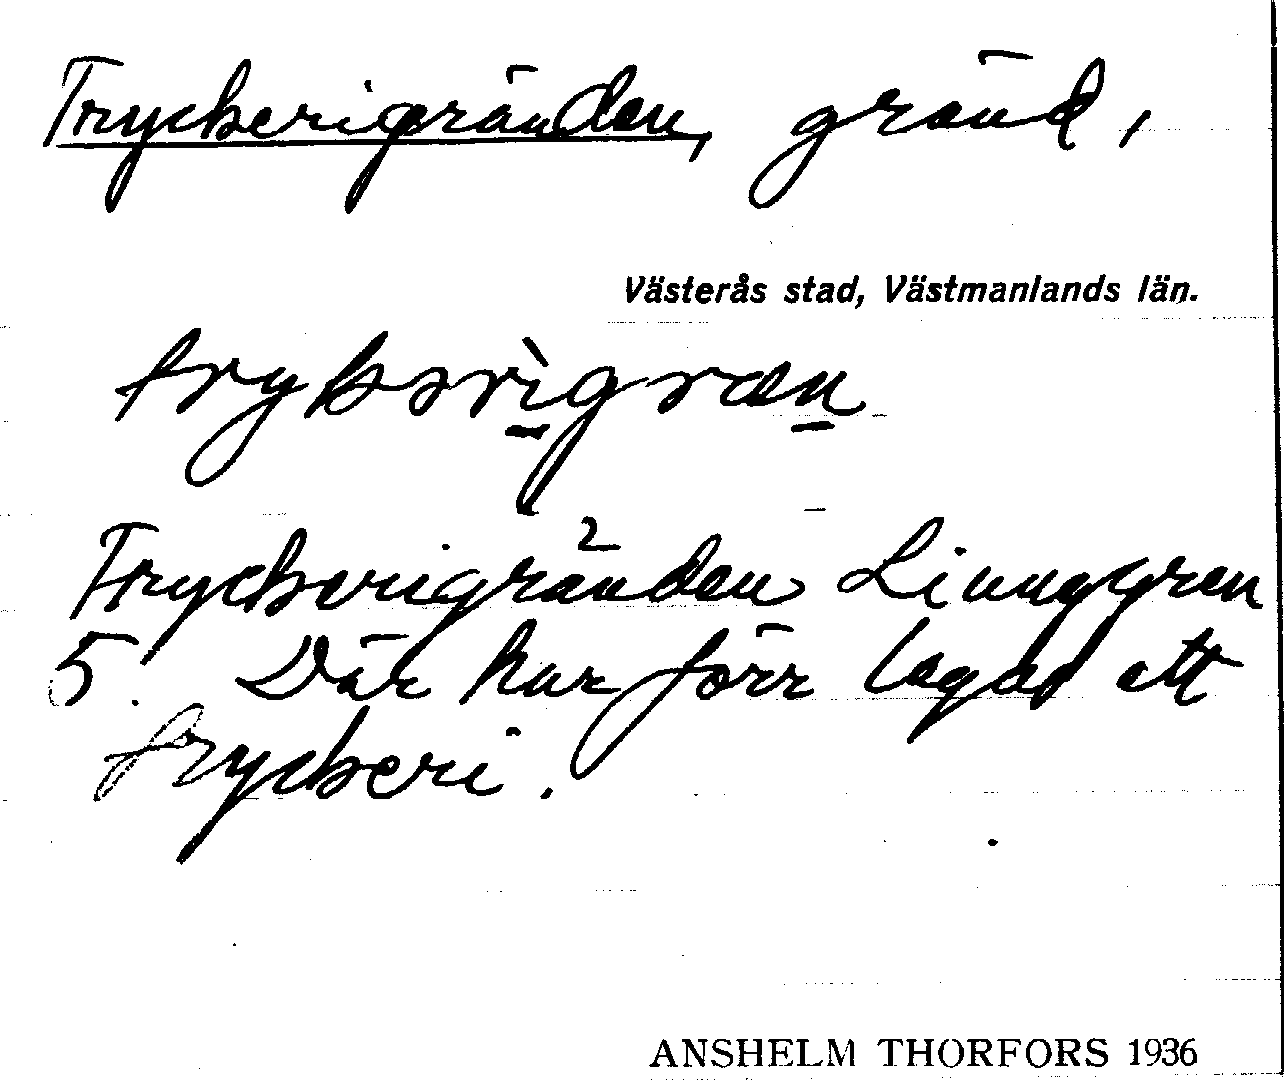 Tryckerigränden, gränd,
Västerås stad, Västmanlands län.
trykərìgræn
Tryckerigränden Ljunggren
5. Där har förr legat ett
tryckeri.
ANSHELM THORFORS 1936